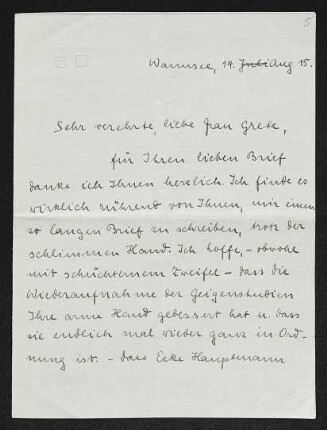 5
Wannsee, 14. Juli Aug 15.
Sehr verehrte, liebe Frau Grete,
für Ihren lieben Brief
danke ich Ihnen herzlich. Ich finde es
wirklich rührend von Ihnen, mir einen
so langen Brief zu schreiben, trotz der
schlimmen Hand. Ich hoffe, – obwohl
mit schüchternem Zweifel – dass die
Wiederaufnahme der Geigenstudien
Ihre arme Hand gebessert hat u. dass
sie endlich mal wieder ganz in Ord-
nung ist. – dass Ecke Hauptmann